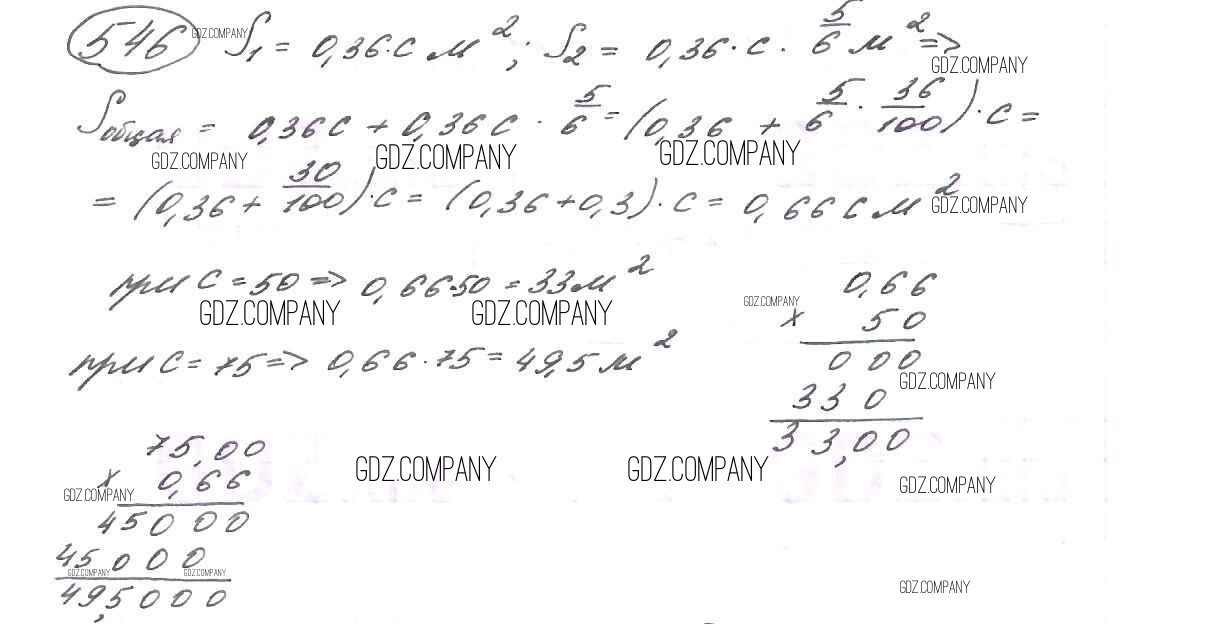 546 GDZ.COMPANY S₁ = 0,36·c м²; S₂ = 0,36·c·5/6 м² =>
GDZ.COMPANY
Sобщая = 0,36c + 0,36c·5/6 = (0,36 + 5/6·36/100)·c =
GDZ.COMPANY GDZ.COMPANY GDZ.COMPANY
= (0,36 + 30/100)·c = (0,36+0,3)·c = 0,66c м² GDZ.COMPANY
при c = 50 => 0,66·50 = 33м²
GDZ.COMPANY GDZ.COMPANY
при c = 75 => 0,66·75 = 49,5м²
0,66
GDZ.COMPANY
x 50
000
GDZ.COMPANY
330
33,00
75,00
x 0,66
GDZ.COMPANY GDZ.COMPANY GDZ.COMPANY GDZ.COMPANY
45000
45000
GDZ.COMPANY GDZ.COMPANY
49,5000
GDZ.COMPANY